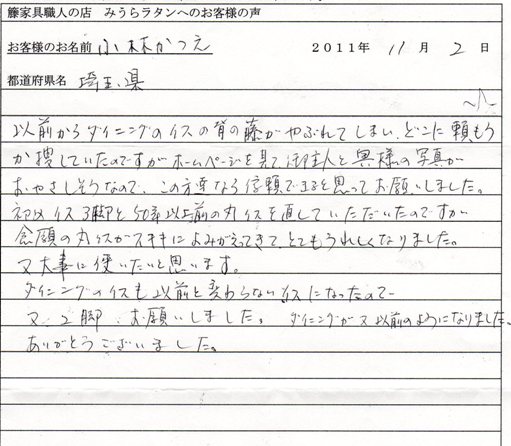 籐家具職人の店 みうらラタンへのお客様の声
お客様のお名前 小林かつえ 2011年 11月 2日
都道府県名 埼玉県
以前からダイニングのイスの背の藤がやぶれてしまい、どこに頼もう
か捜していたのですがホームページを見て御主人と奥様の写真が
おやさしそうなので、この方達なら信頼できると思ってお願いしました。
初めイス3脚と50年以上前の丸イスを直していただいたのですが
念願の丸イスがステキによみがえってきて、とてもうれしくなりました。
又大事に使いたいと思います。
ダイニングのイスも以前と変わらないイスになったので
又、2脚、お願いしました。 ダイニングが又以前のようになりました。
ありがとうございました。